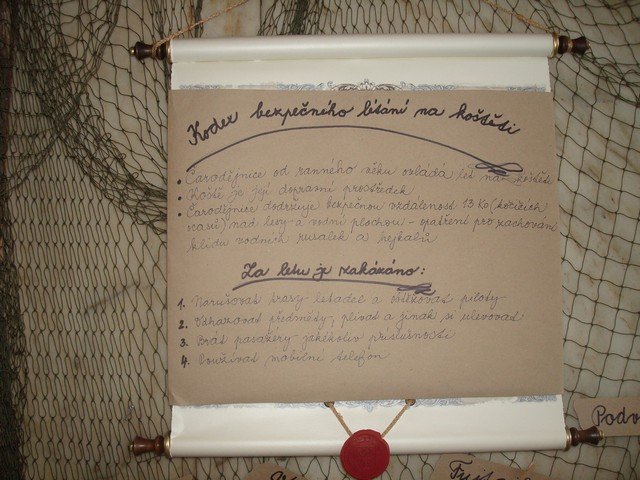 Kodex bezpečného lítání na koštěti
• Čarodějnice od ranného věku ovládá let na koštěti
• Koště je její dopravní prostředek
• Čarodějnice dodržuje bezpečnou vzdálenost 13 Ko (kočičích
ocasů) nad lesy a vodní plochou - opatření pro zachování
klidu vodních rusalek a hejkalů
Za letu je zakázáno:
1. Narušovat trasy letadel a obtěžovat piloty
2. Odhazovat předměty, plivat a jinak si ulevovat
3. Brát pasažéry jakékoliv příslušnosti
4. Používat mobilní telefon
Podv